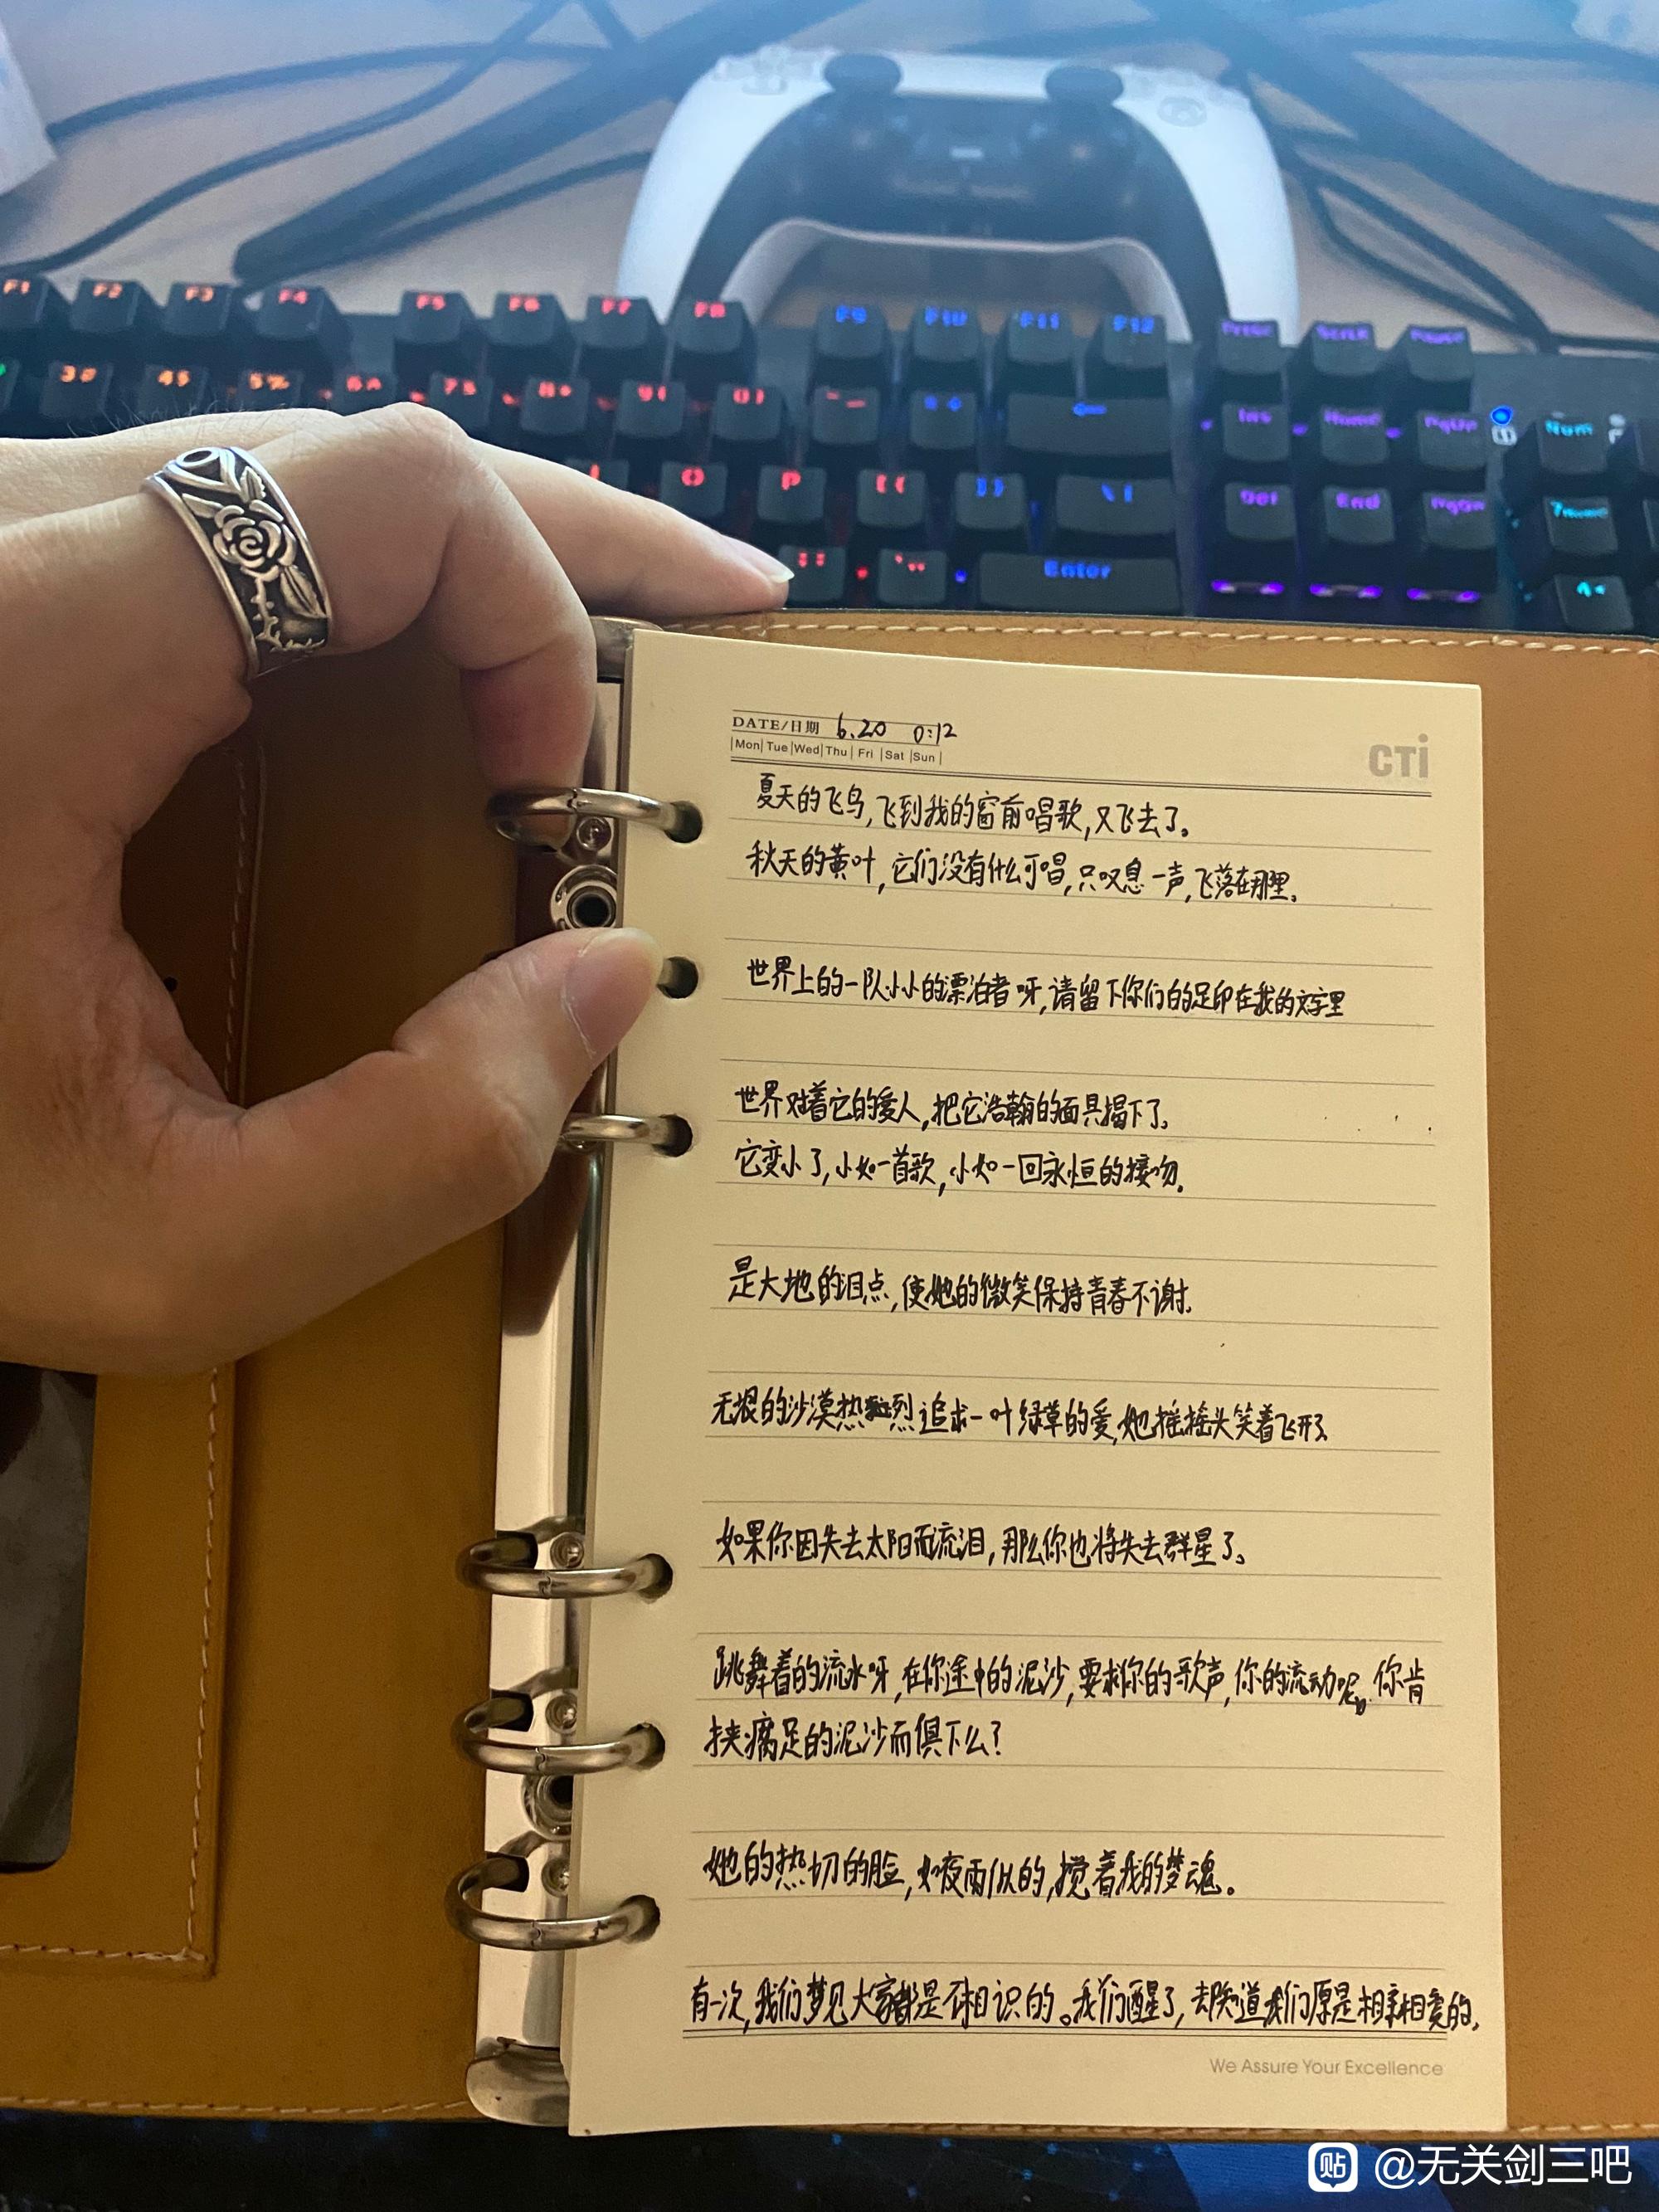 F1 F2 F3 F4 F5 F6 F7 F8 F9 F10 F11 F12
Ins Home PgUp Num
O P
End
Enter
DATE/日期 6.20 0:12
Mon Tue Wed Thu Fri Sat Sun
CTi
夏天的飞鸟,飞到我的窗前唱歌,又飞去了。
秋天的黄叶,它们没有什么可唱,只叹息一声,飞落在那里。
世界上的一队小小的漂泊者呀,请留下你们的足印在我的文字里
世界对着它的爱人,把它浩翰的面具揭下了。
它变小了,小如一首歌,小如一回永恒的接吻。
是大地的泪点,使她的微笑保持青春不谢.
无垠的沙漠热烈追求一叶绿草的爱,她摇摇头笑着飞开了
如果你因失去太阳而流泪,那么你也将失去群星了。
跳舞着的流水呀,在你途中的泥沙,要求你的歌声,你的流动呢。你肯
挟瘸足的泥沙而俱下么?
她的热切的脸,如夜雨似的,搅着我的梦魂。
有一次,我们梦见大家都是不相识的。我们醒了,却知道我们原是相亲相爱的。
We Assure Your Excellence
贴 @无关剑三吧